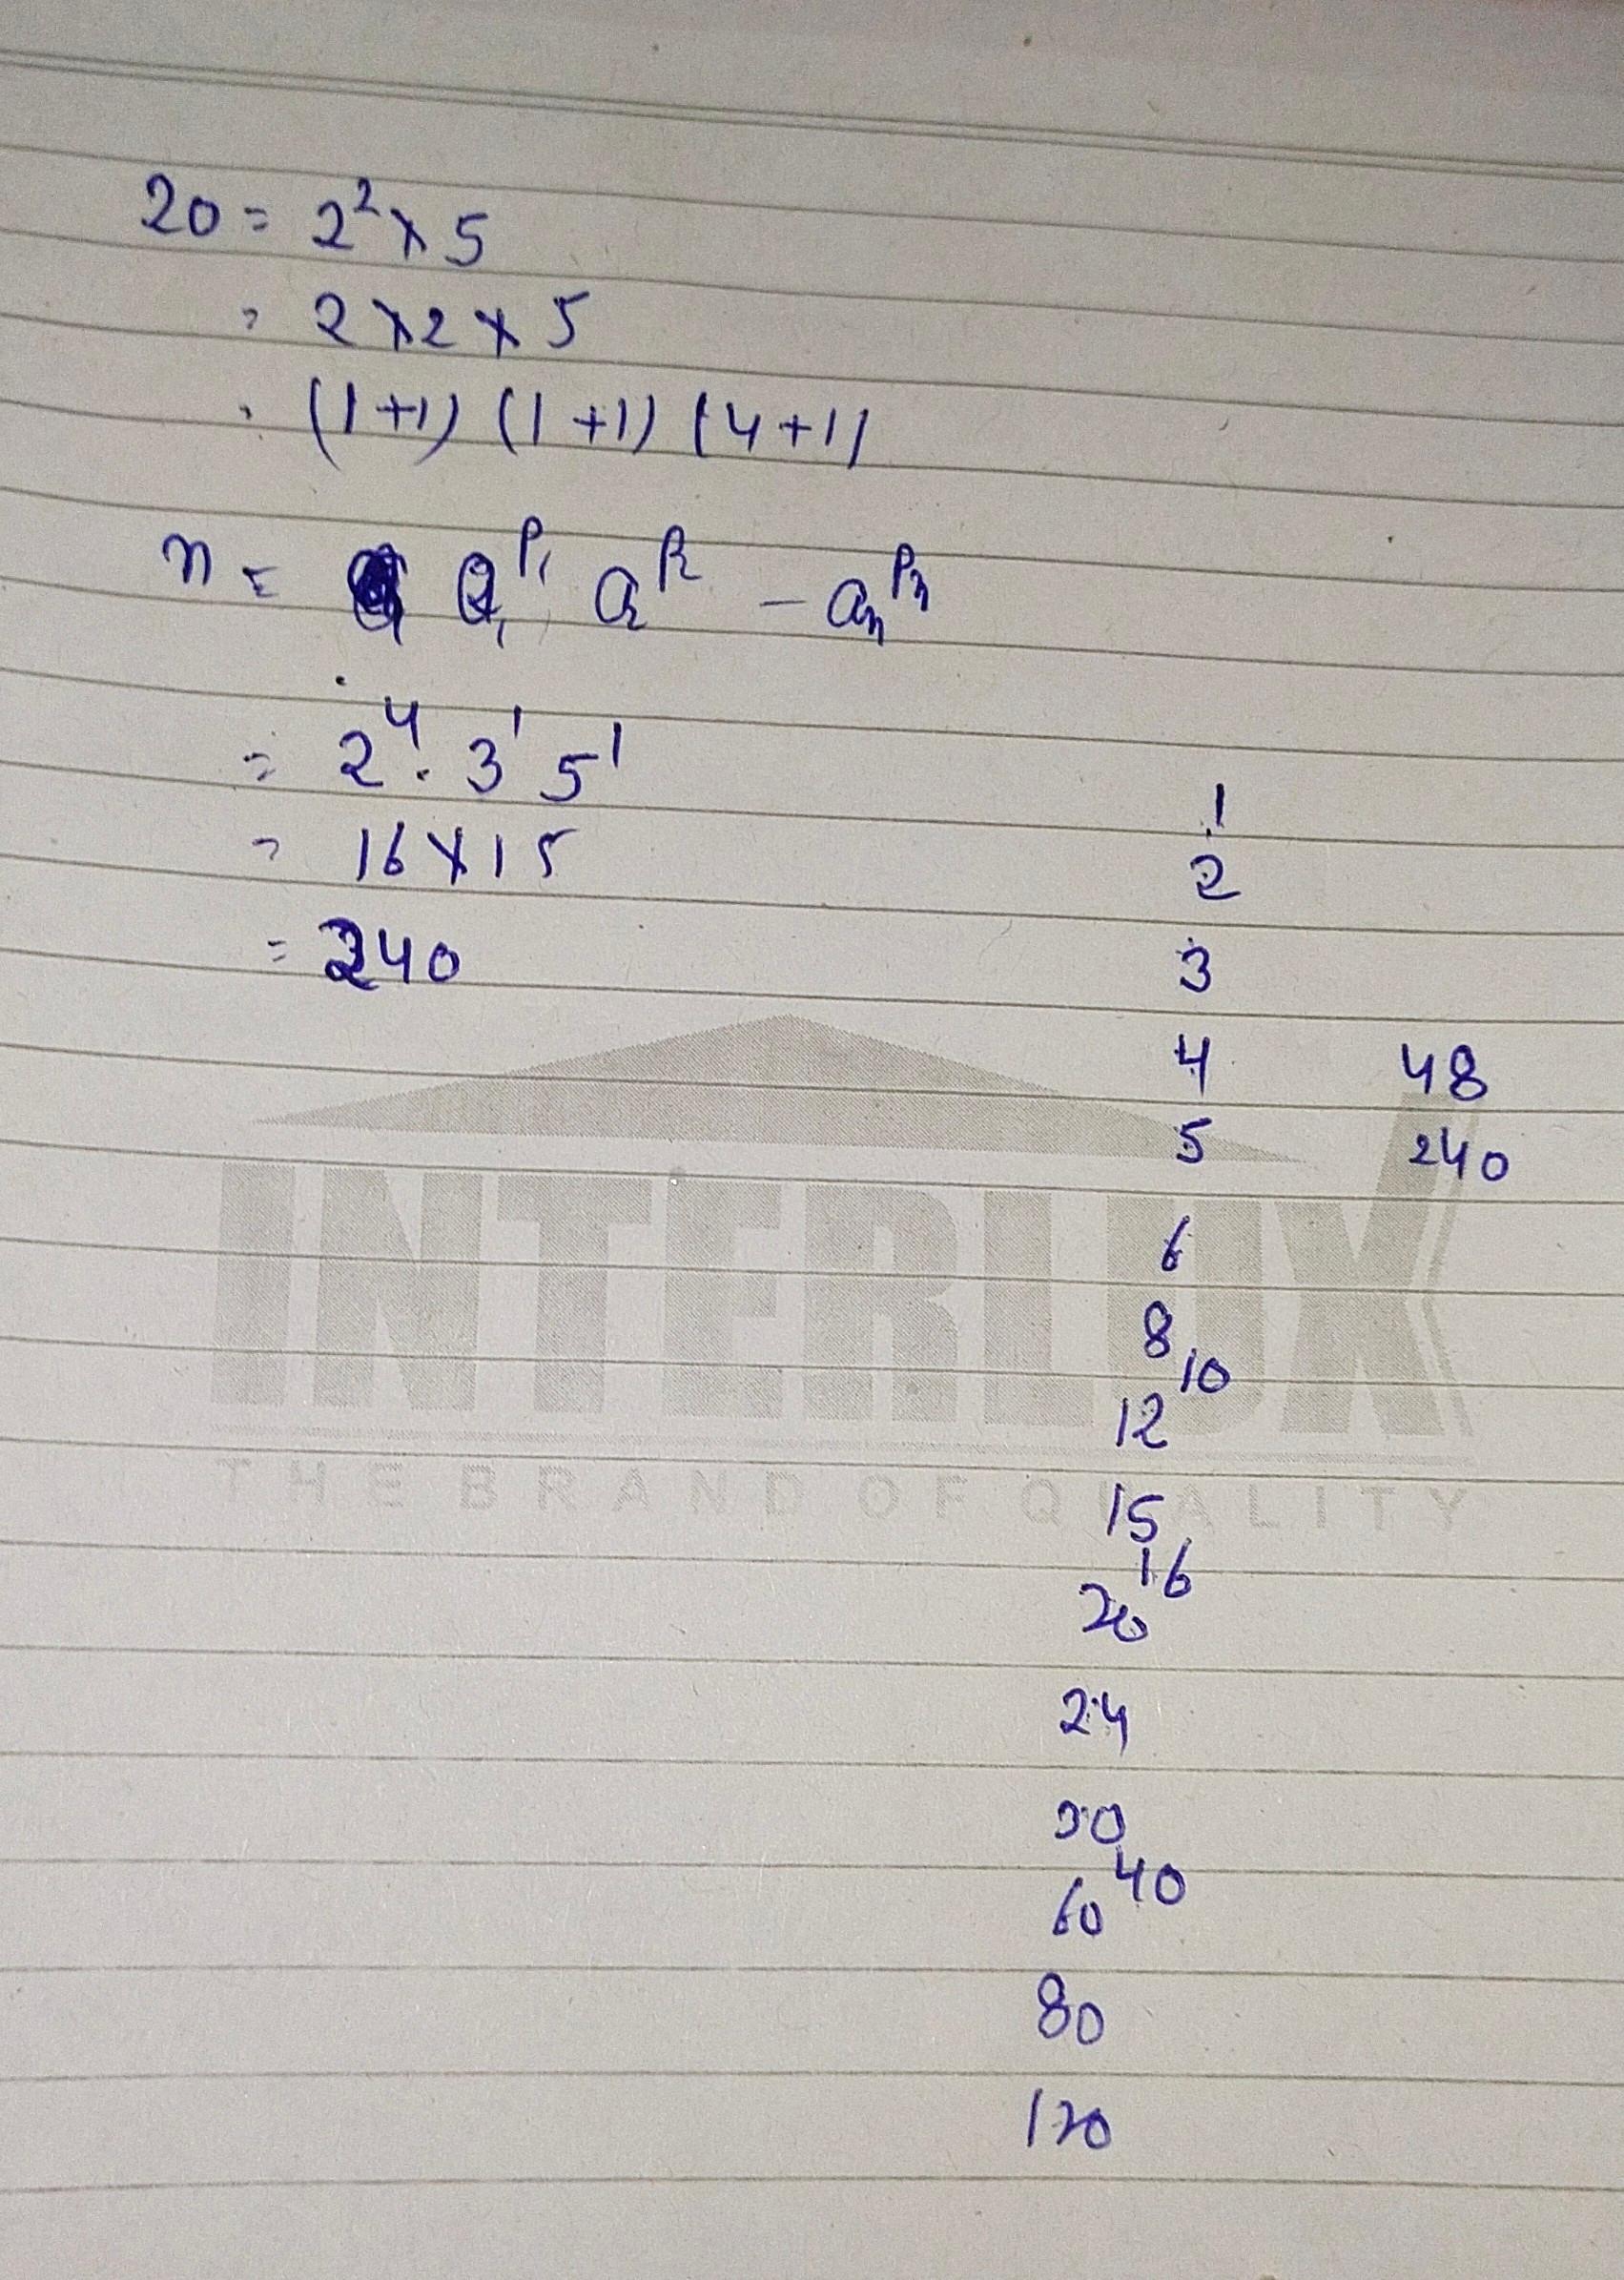 20 = 2² × 5
= 2 × 2 × 5
= (1+1) (1+1) (4+1)
n = a₁^p₁ a₂^p₂ – aₙ^pₙ
= 2⁴ · 3¹ 5¹
= 16 × 15
= 240
1
2
3
4 48
5 240
6
8
10
12
15
16
20
24
30
40
60
80
120
INTERLUX
THE BRAND OF QUALITY